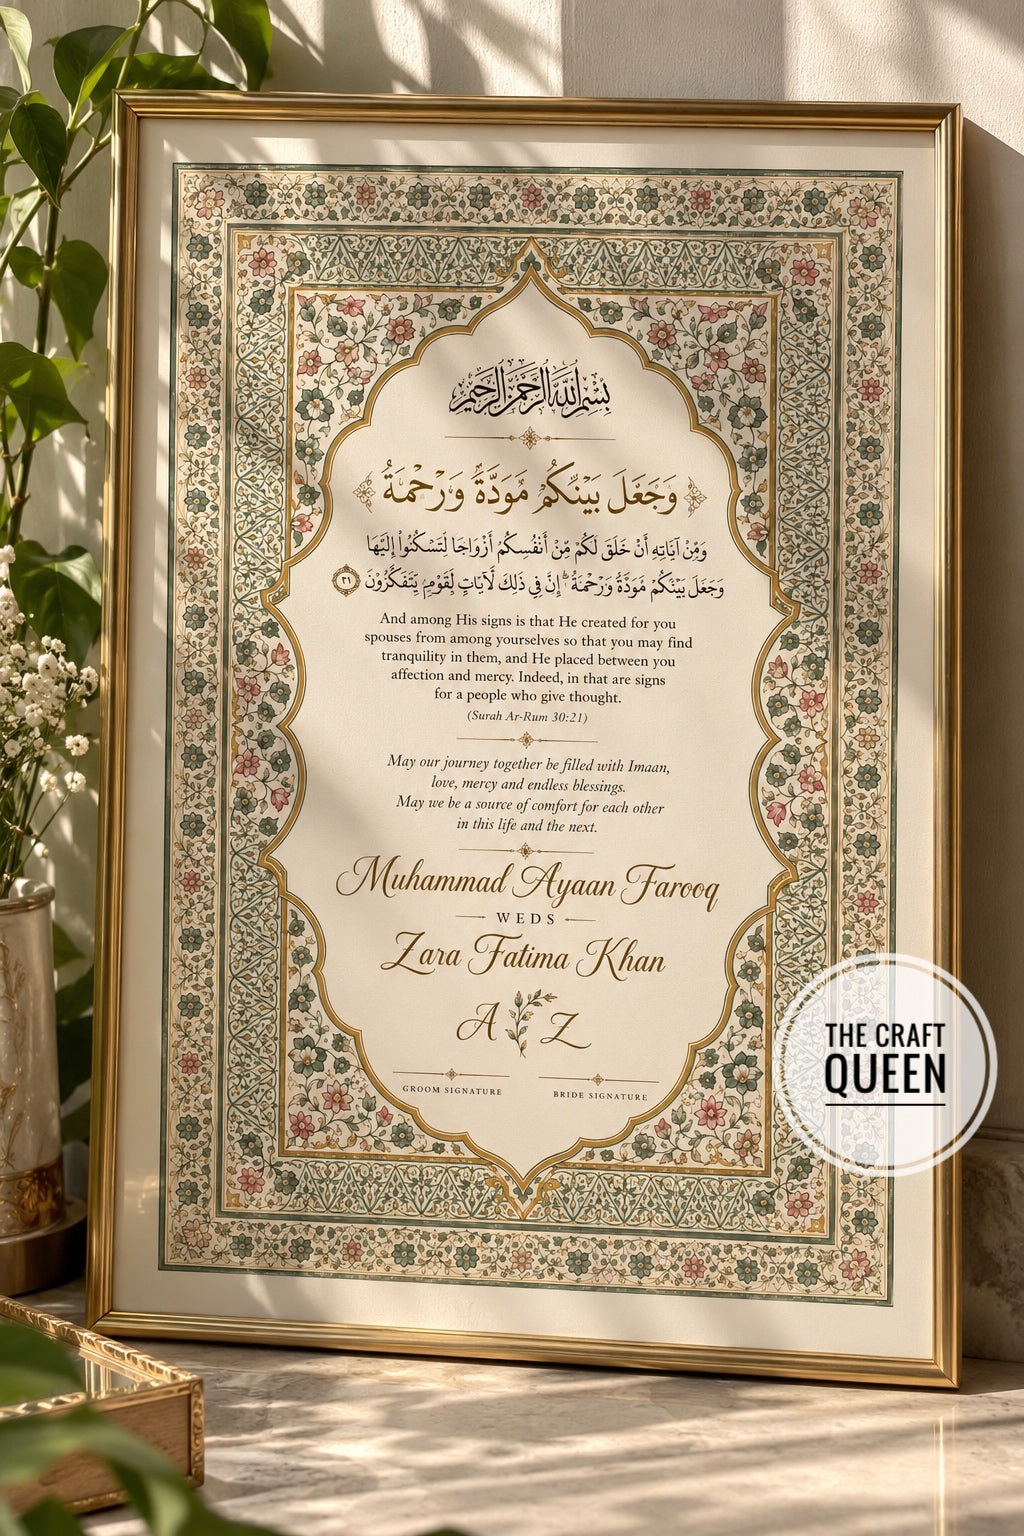 بِسْمِ اللَّهِ الرَّحْمَنِ الرَّحِيمِ
وَجَعَلَ بَيْنَكُمْ مَوَدَّةً وَرَحْمَةً
وَمِنْ آيَاتِهِ أَنْ خَلَقَ لَكُمْ مِنْ أَنْفُسِكُمْ أَزْوَاجًا لِتَسْكُنُوا إِلَيْهَا
وَجَعَلَ بَيْنَكُمْ مَوَدَّةً وَرَحْمَةً ۚ إِنَّ فِي ذَلِكَ لَآيَاتٍ لِقَوْمٍ يَتَفَكَّرُونَ ٢١
And among His signs is that He created for you
spouses from among yourselves so that you may find
tranquility in them, and He placed between you
affection and mercy. Indeed, in that are signs
for a people who give thought.
(Surah Ar-Rum 30:21)
May our journey together be filled with Imaan,
love, mercy and endless blessings.
May we be a source of comfort for each other
in this life and the next.
Muhammad Ayaan Farooq
WEDS
Zara Fatima Khan
A Z
GROOM SIGNATURE
BRIDE SIGNATURE
THE CRAFT
QUEEN